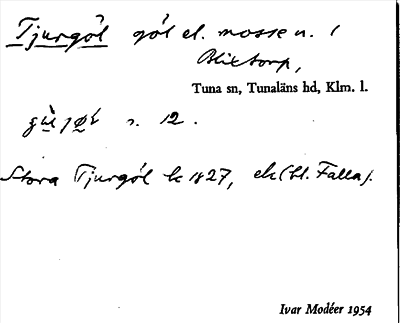 Tjurgöl göl el. mosse n. (
Blixtorp,
Tuna sn, Tunaläns hd, Klm. l.
s. 12.
Stora Tjurgöl k 1827, ek (bl. Falla).
Ivar Modéer 1954